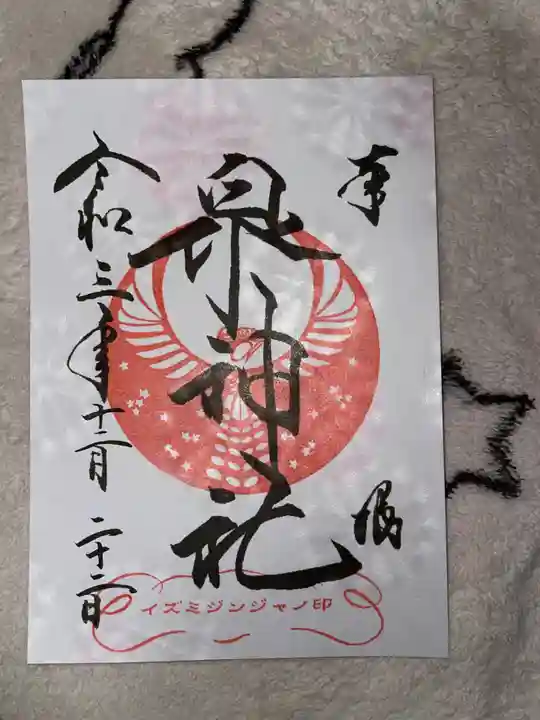 奉
拝
泉神社
令和三年十二月二十二日
イズミジンジャノ印